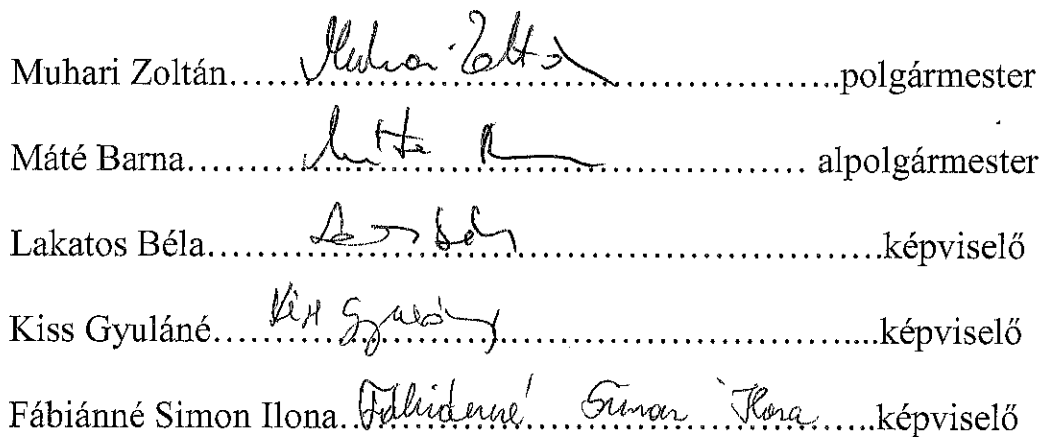 Muhari Zoltán…..Muhari Zoltán……………………..polgármester
Máté Barna……Máté B…………………… alpolgármester
Lakatos Béla……………………………………………..képviselő
Kiss Gyuláné……Kiss Gyuláné…………………………....képviselő
Fábiánné Simon Ilona..Fábiánné Simon Ilona……..képviselő